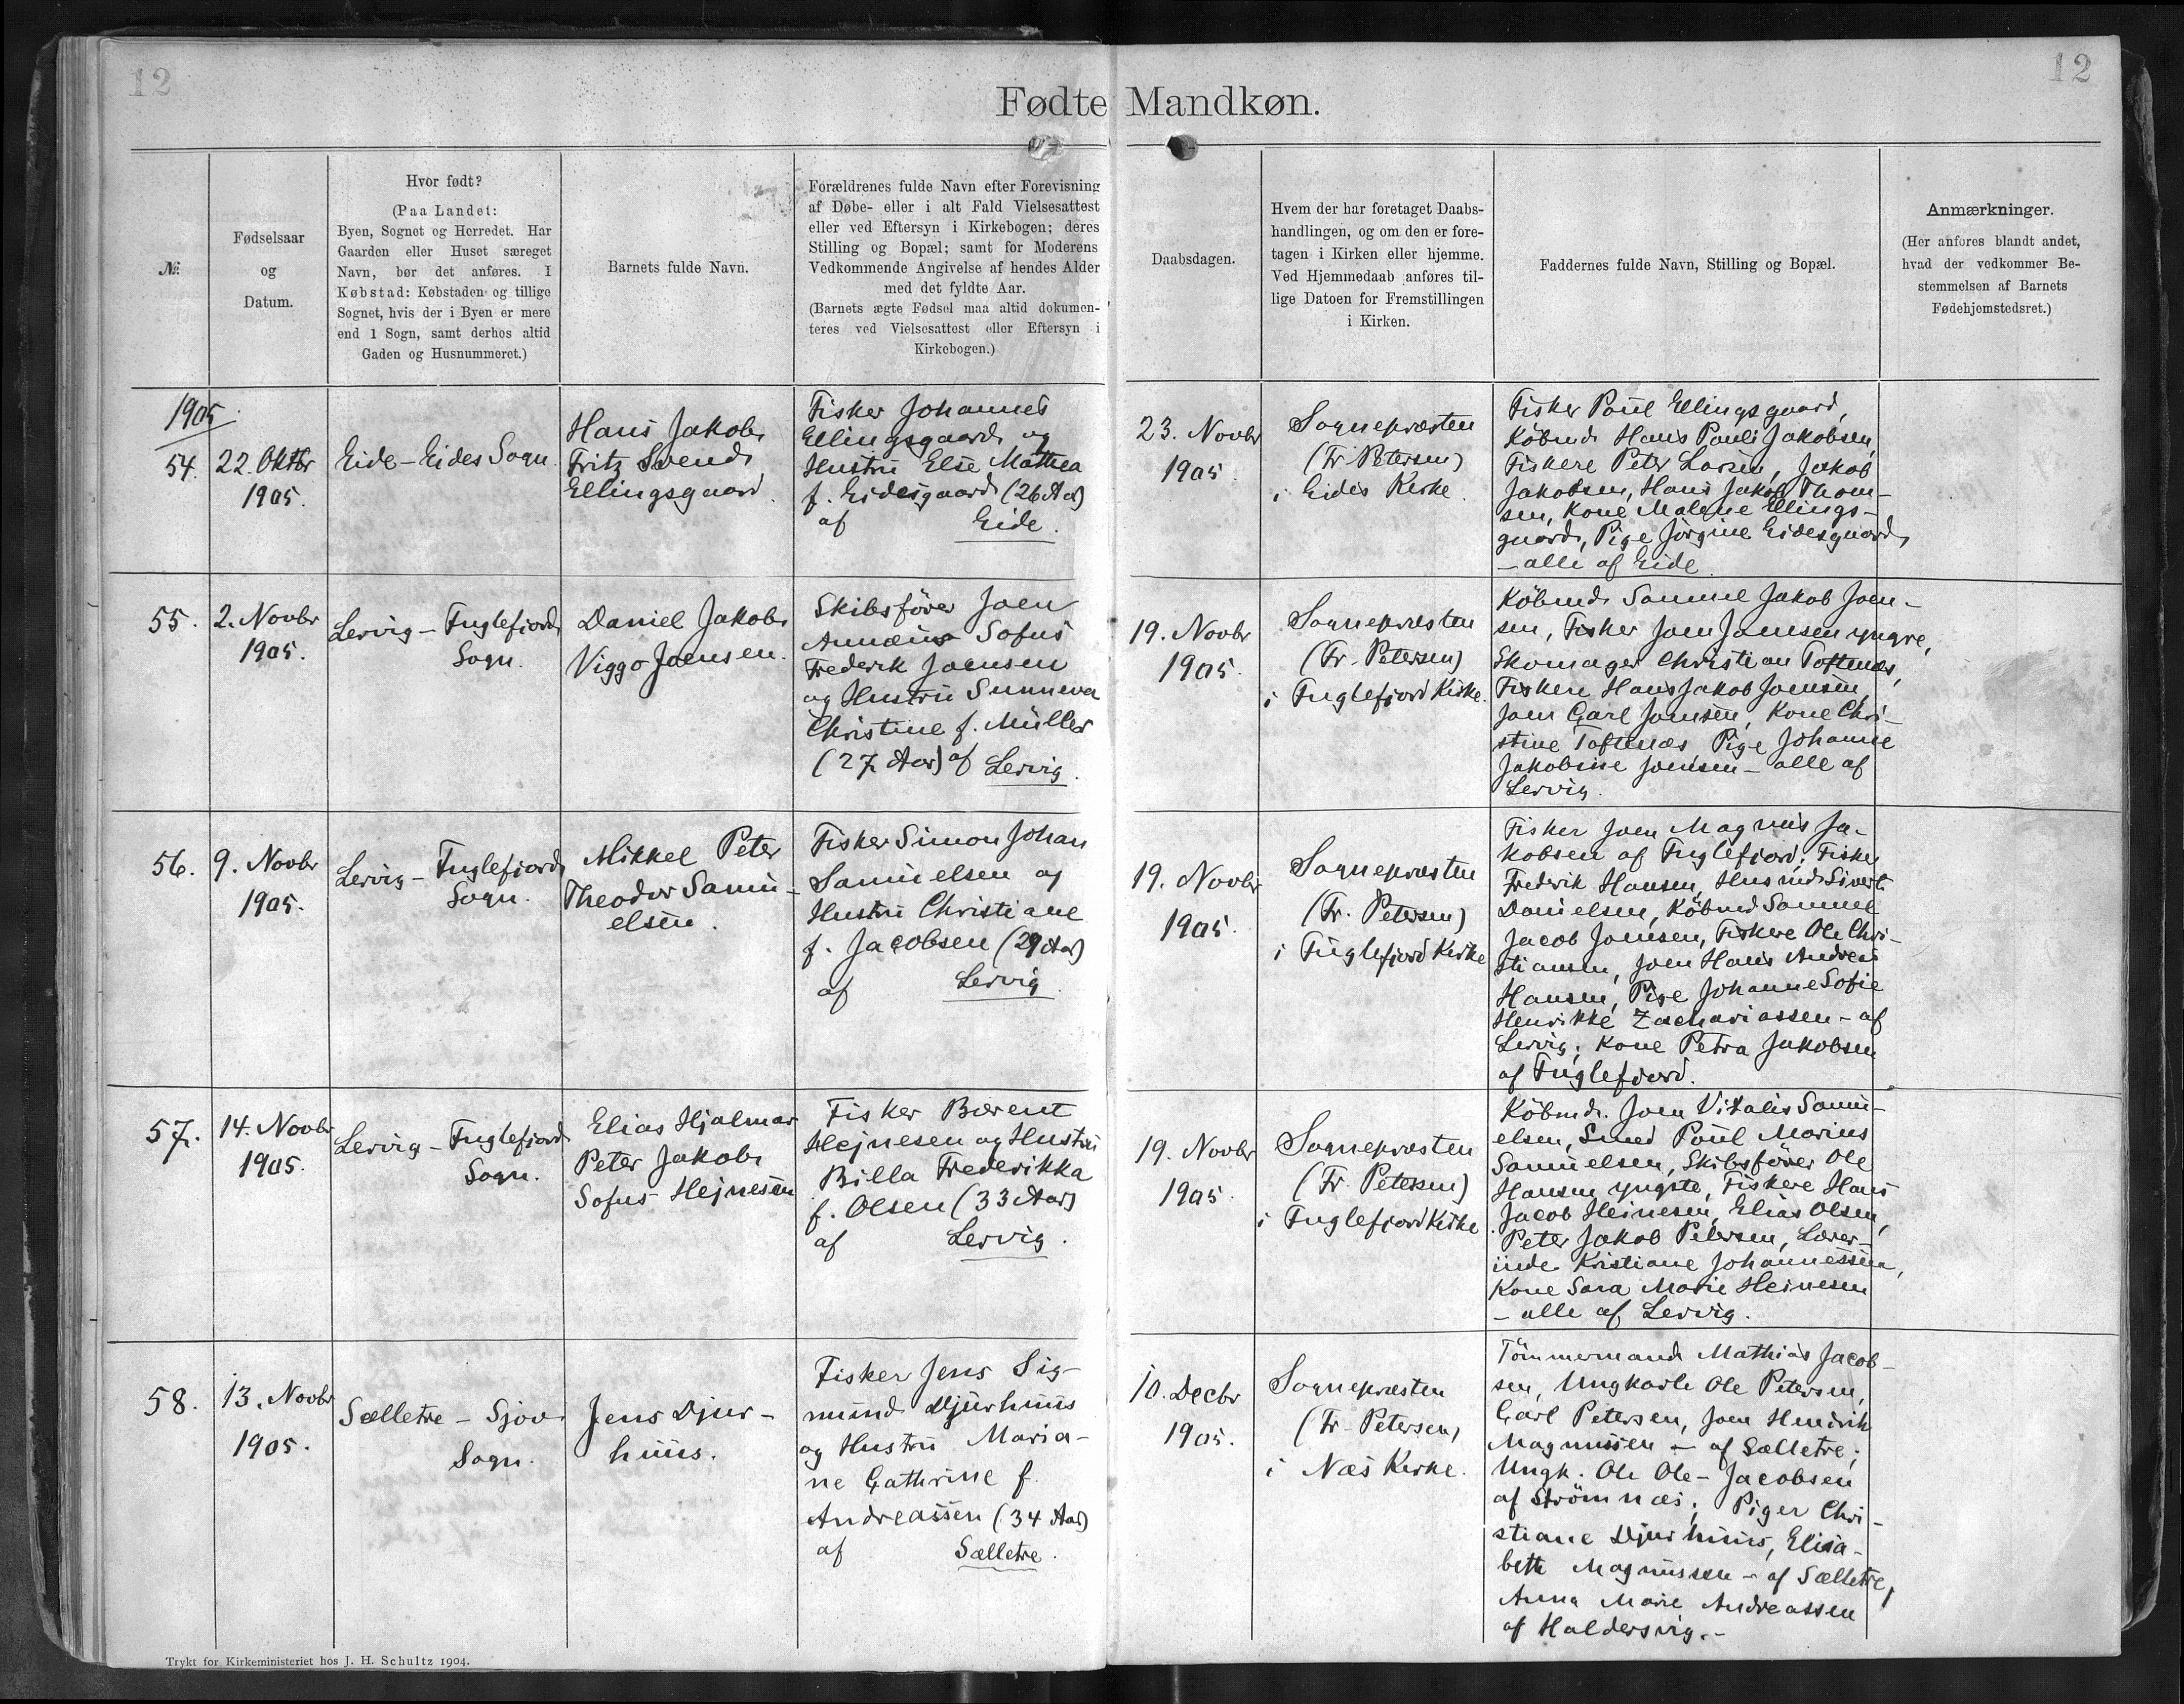 12
12
Fødte Mandkøn.
№
Fødselsaar
og
Datum.
Hvor født?
(Paa Landet:
Byen, Sognet og Herredet. Har
Gaarden eller Huset særeget
Navn, bør det anføres. I
Købstad: Købstaden og tillige
Sognet, hvis der i Byen er mere
end 1 Sogn, samt derhos altid
Gaden og Husnummeret.)
Barnets fulde Navn.
Forældrenes fulde Navn efter Forevisning
af Døbe- eller i alt Fald Vielsesattest
eller ved Eftersyn i Kirkebogen; deres
Stilling og Bopæl; samt for Moderens
Vedkommende Angivelse af hendes Alder
med det fyldte Aar.
(Barnets ægte Fødsel maa altid dokumen-
teres ved Vielsesattest eller Eftersyn i
Kirkebogen.)
Daabsdagen.
Hvem der har foretaget Daabs-
handlingen, og om den er fore-
tagen i Kirken eller hjemme.
Ved Hjemmedaab anføres til-
lige Datoen for Fremstillingen
i Kirken.
Faddernes fulde Navn, Stilling og Bopæl.
Anmærkninger.
(Her anføres blandt andet,
hvad der vedkommer Be-
stemmelsen af Barnets
Fødehjemstedsret.)
1905
54.
22. Oktbr
1905.
Eide - Eides Sogn
Hans Jakob
Fritz Svend
Ellingsgaard.
Fisker Johannes
Ellingsgaard og
Hustru Else Mathea
f. Eidesgaard (26 Aar)
af Eide.
23. Novbr
1905.
Sognepræsten
(Fr. Petersen)
i Eides Kirke.
Fisker Poul Ellingsgaard,
Købmd. Hans Pauli Jakobsen,
Fiskere Peter Larsen, Jakob
Jakobsen, Hans Jakob Thom-
sen, Kone Malene Ellings-
gaard, Pige Jörgine Eidesgaard,
- alle af Eide.
55.
2. Novbr
1905.
Lervig - Fuglefjord
Sogn.
Daniel Jakob
Viggo Joensen.
Skibsfører Joen
Sofus
Frederik Joensen
og Hustru Sunneva
Christine f. Müller
(27 Aar) af Lervig.
19. Novbr
1905.
Sognepræsten
(Fr. Petersen)
i Fuglefjord Kirke.
Købmd. Samuel Jakob Joen-
sen, Fisker Joen Joensen yngre,
Skomager Christian Toftenæs,
Fiskere Hans Jakob Joensen,
Joen Carl Joensen, Kone Chri-
stine Toftenæs, Pige Johanne
Jakobine Joensen - alle af
Lervig.
56.
9. Novbr
1905.
Lervig - Fuglefjord
Sogn.
Mikkel Peter
Theodor Samu-
elsen.
Fisker Simon Johan
Samuelsen og
Hustru Christiane
f. Jacobsen (29 Aar)
af Lervig.
19. Novbr
1905.
Sognepræsten
(Fr. Petersen)
i Fuglefjord Kirke
Fisker Joen Magnus Ja-
kobsen af Fuglefjord; Fisker
Frederik Hansen, Husmd Sivert
Danielsen, Købmd Samuel
Jacob Joensen, Fiskere Ole Chri-
stiansen, Joen Hans Andreas
Hansen, Pige Johanne Sofie
Henrikke Zachariassen - af
Lervig; Kone Petra Jakobsen
af Fuglefjord.
57.
14. Novbr
1905.
Lervig - Fuglefjord
Sogn.
Elias Hjalmar
Peter Jakob
Sofus Hejnesen
Fisker Bærent
Hejnesen og Hustru
Billa Frederikka
f. Olsen (33 Aar)
af Lervig.
19. Novbr
1905.
Sognepræsten
(Fr. Petersen)
i Fuglefjord Kirke
Købmd. Joen Vitalis Samu-
elsen, Smed Poul Marius
Samuelsen, Skibsfører Ole
Hansen yngste, Fiskere Hans
Jacob Heinesen, Elias Olsen,
Peter Jakob Petersen, Lærer-
inde Kristiane Johannessen,
Kone Sara Marie Heinesen
- alle af Lervig.
58.
13. Novbr
1905.
Sælletre - Sjov
Sogn.
Jens Djur-
huus.
Fisker Jens Sig-
mund Djurhuus
og Hustru Maria-
ne Cathrine f.
Andreassen (34 Aar)
af Sælletre.
10. Decbr
1905.
Sognepræsten
(Fr. Petersen)
i Næs Kirke.
Tömmermand Mathias Jacob-
sen, Ungkarle Ole Petersen,
Carl Petersen, Joen Hendrik
Magnussen - af Sælletre;
Ungk. Ole Ole-Jacobsen
af Strömnæs; Piger Chri-
stiane Djurhuus, Elisa-
beth Magnussen - af Sælletre,
Anna Marie Andreassen
af Haldersvig.-
Trykt for Kirkeministeriet hos J. H. Schultz 1904.